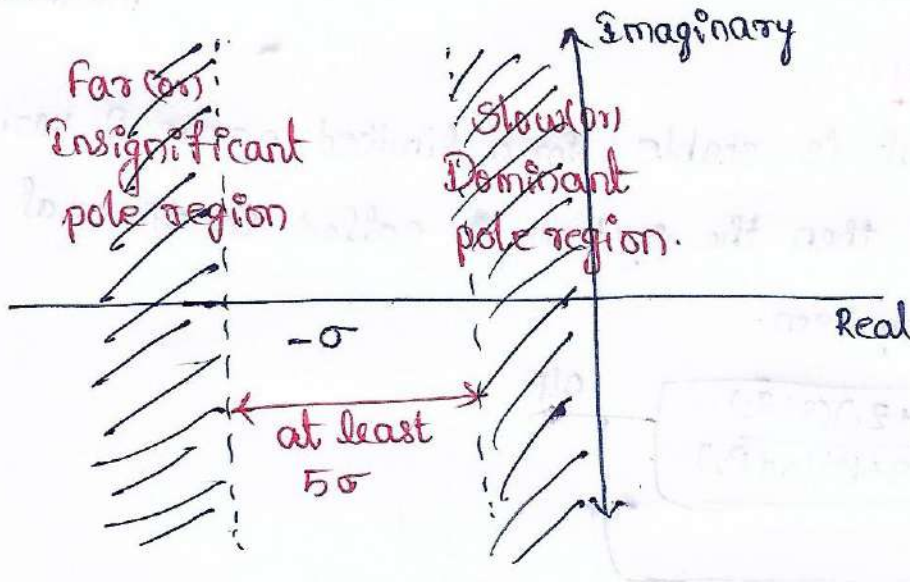 Imaginary
Far (or)
Insignificant
pole region
Slow (or)
Dominant
pole region.
Real
-σ
at least
5σ